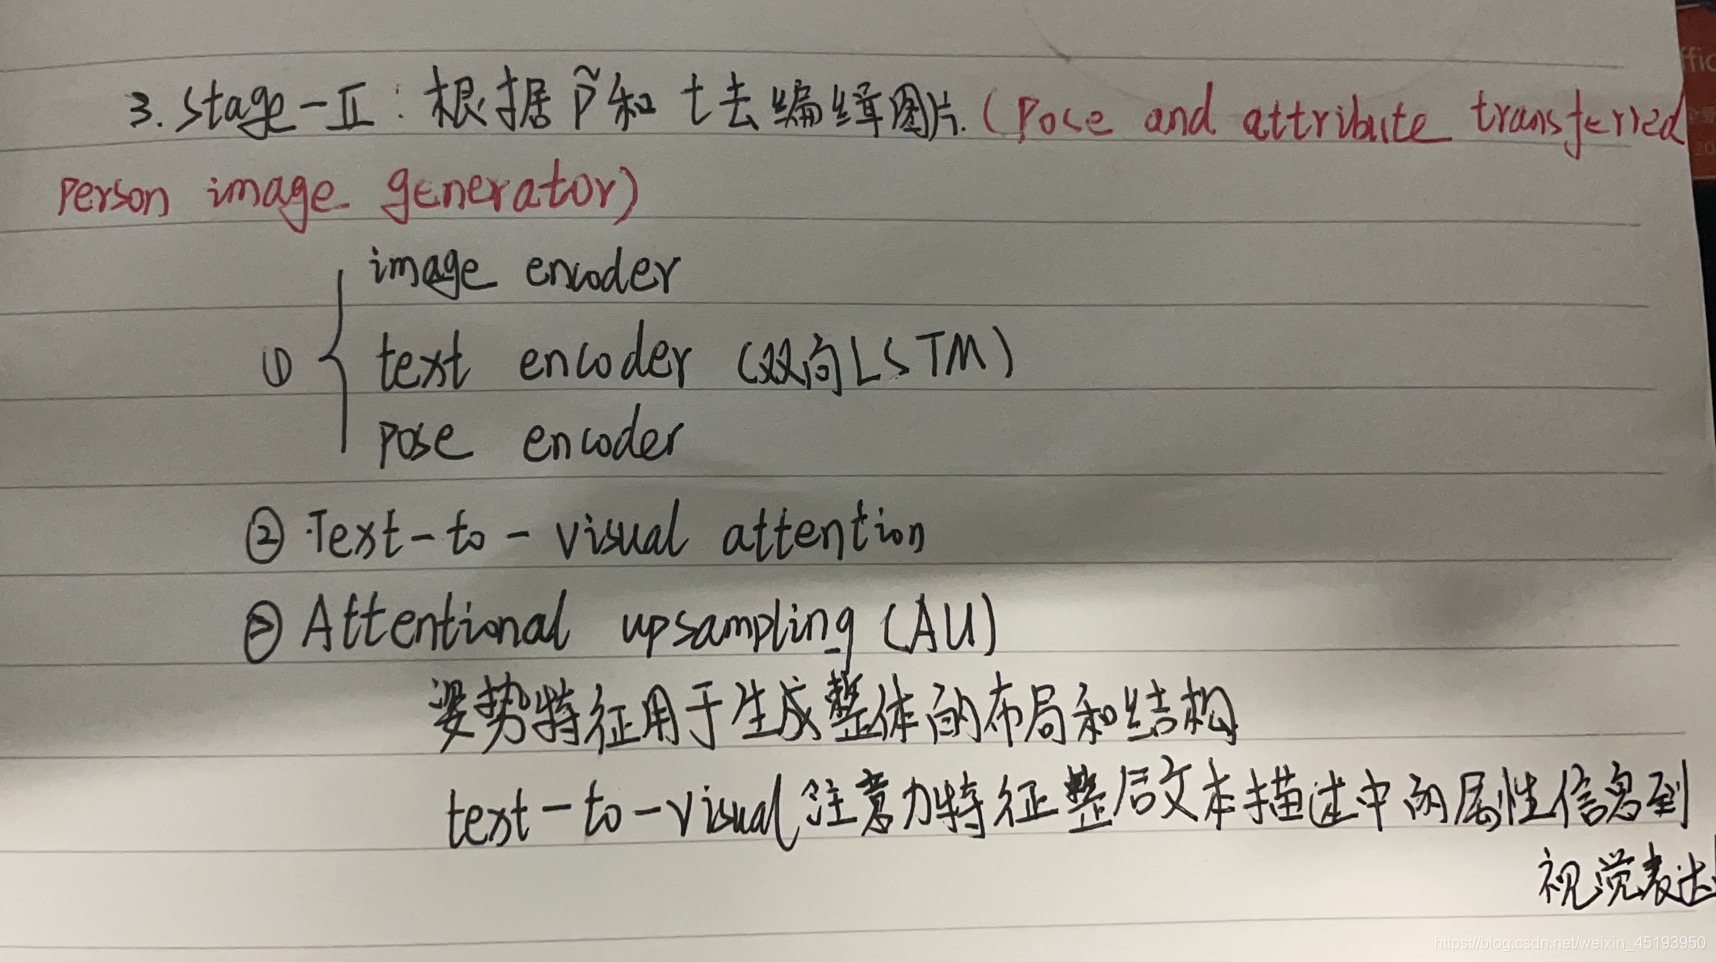 3. Stage-II: 根据p̃和 t去编辑图片.(Pose and attribute transferred
person image generator)
① image encoder
text encoder (双向LSTM)
pose encoder
② Text-to-visual attention
③ Attentional upsampling (AU)
姿势特征用于生成整体的布局和结构
text-to-visual注意力特征整合文本描述中的属性信息到
视觉表达
https://blog.csdn.net/weixin_45193950